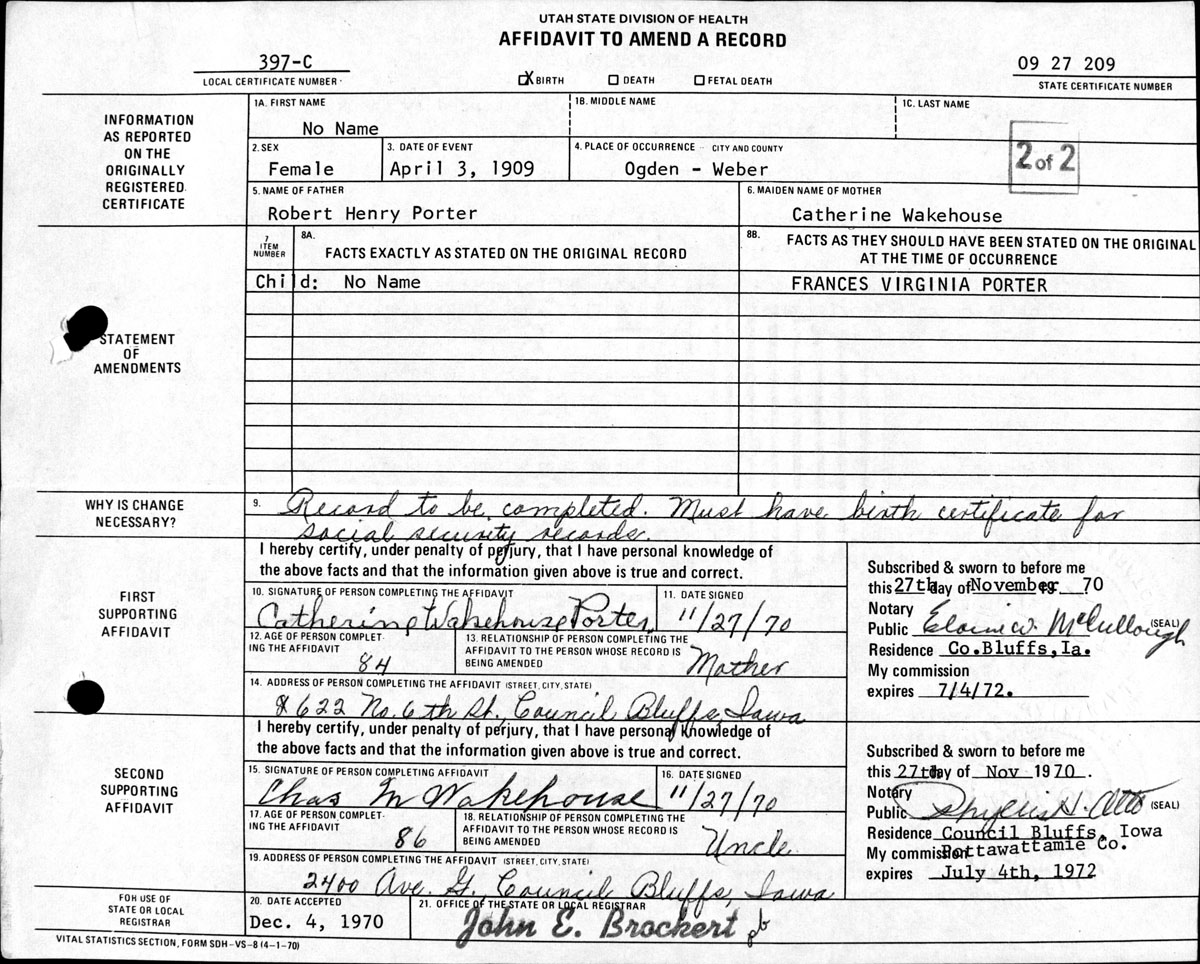 UTAH STATE DIVISION OF HEALTH
AFFIDAVIT TO AMEND A RECORD
397-C
LOCAL CERTIFICATE NUMBER
X BIRTH DEATH FETAL DEATH
09 27 209
STATE CERTIFICATE NUMBER
INFORMATION AS REPORTED ON THE ORIGINALLY REGISTERED CERTIFICATE
1A. FIRST NAME
No Name
1B. MIDDLE NAME
1C. LAST NAME
2. SEX
Female
3. DATE OF EVENT
April 3, 1909
4. PLACE OF OCCURRENCE - CITY AND COUNTY
Ogden - Weber
2 of 2
5. NAME OF FATHER
Robert Henry Porter
6. MAIDEN NAME OF MOTHER
Catherine Wakehouse
STATEMENT OF AMENDMENTS
7 ITEM NUMBER
8A. FACTS EXACTLY AS STATED ON THE ORIGINAL RECORD
8B. FACTS AS THEY SHOULD HAVE BEEN STATED ON THE ORIGINAL AT THE TIME OF OCCURRENCE
Child: No Name
FRANCES VIRGINIA PORTER
WHY IS CHANGE NECESSARY?
9. Record to be completed. Must have birth certificate for
social security records.
FIRST SUPPORTING AFFIDAVIT
I hereby certify, under penalty of perjury, that I have personal knowledge of
the above facts and that the information given above is true and correct.
10. SIGNATURE OF PERSON COMPLETING THE AFFIDAVIT
Catherine Wakehouse Porter
11. DATE SIGNED
11/27/70
12. AGE OF PERSON COMPLETING THE AFFIDAVIT
84
13. RELATIONSHIP OF PERSON COMPLETING THE AFFIDAVIT TO THE PERSON WHOSE RECORD IS BEING AMENDED
Mother
14. ADDRESS OF PERSON COMPLETING THE AFFIDAVIT (STREET, CITY, STATE)
622 No. 6th St. Council Bluffs, Iowa
Subscribed & sworn to before me
this 27th day of November 70
Notary
Public Elaine W. McCullough (SEAL)
Residence Co.Bluffs,Ia.
My commission
expires 7/4/72.
SECOND SUPPORTING AFFIDAVIT
I hereby certify, under penalty of perjury, that I have personal knowledge of
the above facts and that the information given above is true and correct.
15. SIGNATURE OF PERSON COMPLETING AFFIDAVIT
Chas M Wakehouse
16. DATE SIGNED
11/27/70
17. AGE OF PERSON COMPLETING THE AFFIDAVIT
86
18. RELATIONSHIP OF PERSON COMPLETING THE AFFIDAVIT TO THE PERSON WHOSE RECORD IS BEING AMENDED
Uncle
19. ADDRESS OF PERSON COMPLETING THE AFFIDAVIT (STREET, CITY, STATE)
2400 Ave. G. Council Bluffs, Iowa
Subscribed & sworn to before me
this 27th day of Nov 1970.
Notary
Public Phyllis H. Otto (SEAL)
Residence Council Bluffs, Iowa
My commission Pottawattamie Co.
expires July 4th, 1972
FOR USE OF STATE OR LOCAL REGISTRAR
20. DATE ACCEPTED
Dec. 4, 1970
21. OFFICE OF THE STATE OR LOCAL REGISTRAR
John E. Brockert pb
VITAL STATISTICS SECTION, FORM SDH-VS-8 (4-1-70)